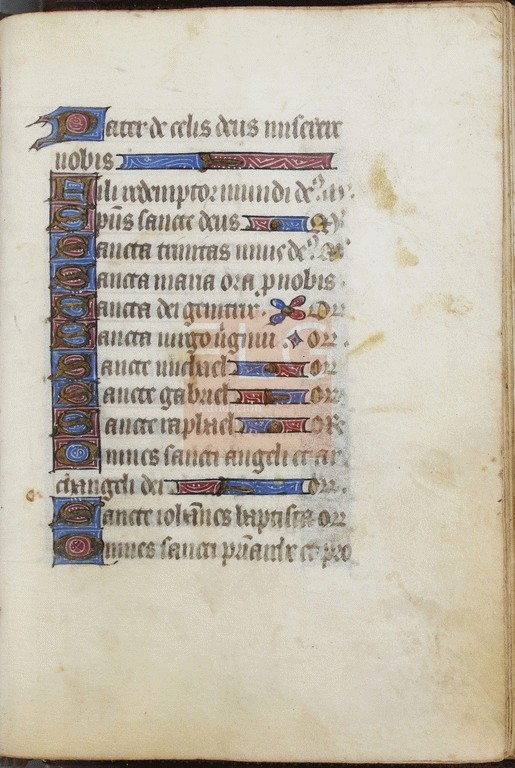 Pater de celis deus miserere
nobis
Fili redemptor mundi de⁹ mͥ
Sp̄us sancte deus mͥ
Sancta trinitas unus de⁹ mͥ
Sancta maria ora p nobis
Sancta dei genitrix Or
Sancta uirgo ūginū or
Sancte michael or
Sancte gabriel or
Sancte raphael or
Omnes sancti angeli et ar
changeli dei or
Sancte ioħanes baptista or
Omnes sancti pr̄iarche et pro